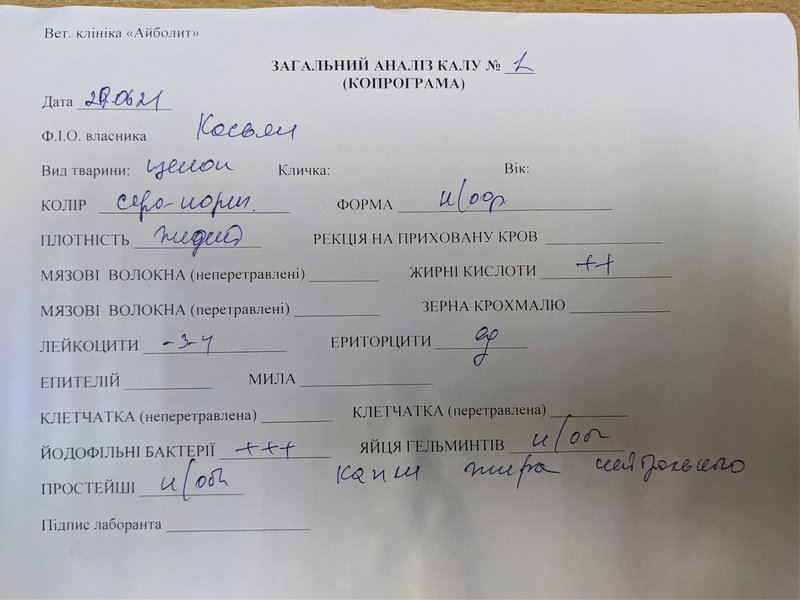 Вет. клініка «Айболит»
ЗАГАЛЬНИЙ АНАЛІЗ КАЛУ № 1
(КОПРОГРАМА)
Дата 29.06 21
Ф.І.О. власника Касьян
Вид тварини: щенок Кличка: Вік:
КОЛІР серо-корич. ФОРМА н/офр
ПЛОТНІСТЬ жидкий РЕКЦІЯ НА ПРИХОВАНУ КРОВ
МЯЗОВІ ВОЛОКНА (неперетравлені) ЖИРНІ КИСЛОТИ ++
МЯЗОВІ ВОЛОКНА (перетравлені) ЗЕРНА КРОХМАЛЮ
ЛЕЙКОЦИТИ -3-4 ЕРИТОРЦИТИ ед
ЕПИТЕЛІЙ МИЛА
КЛЕТЧАТКА (неперетравлена) КЛЕТЧАТКА (перетравлена)
ЙОДОФІЛЬНІ БАКТЕРІЇ +++ ЯЙЦЯ ГЕЛЬМИНТІВ н/обн
ПРОСТЕЙШІ н/обн капли жира нейтрального
Підпис лаборанта